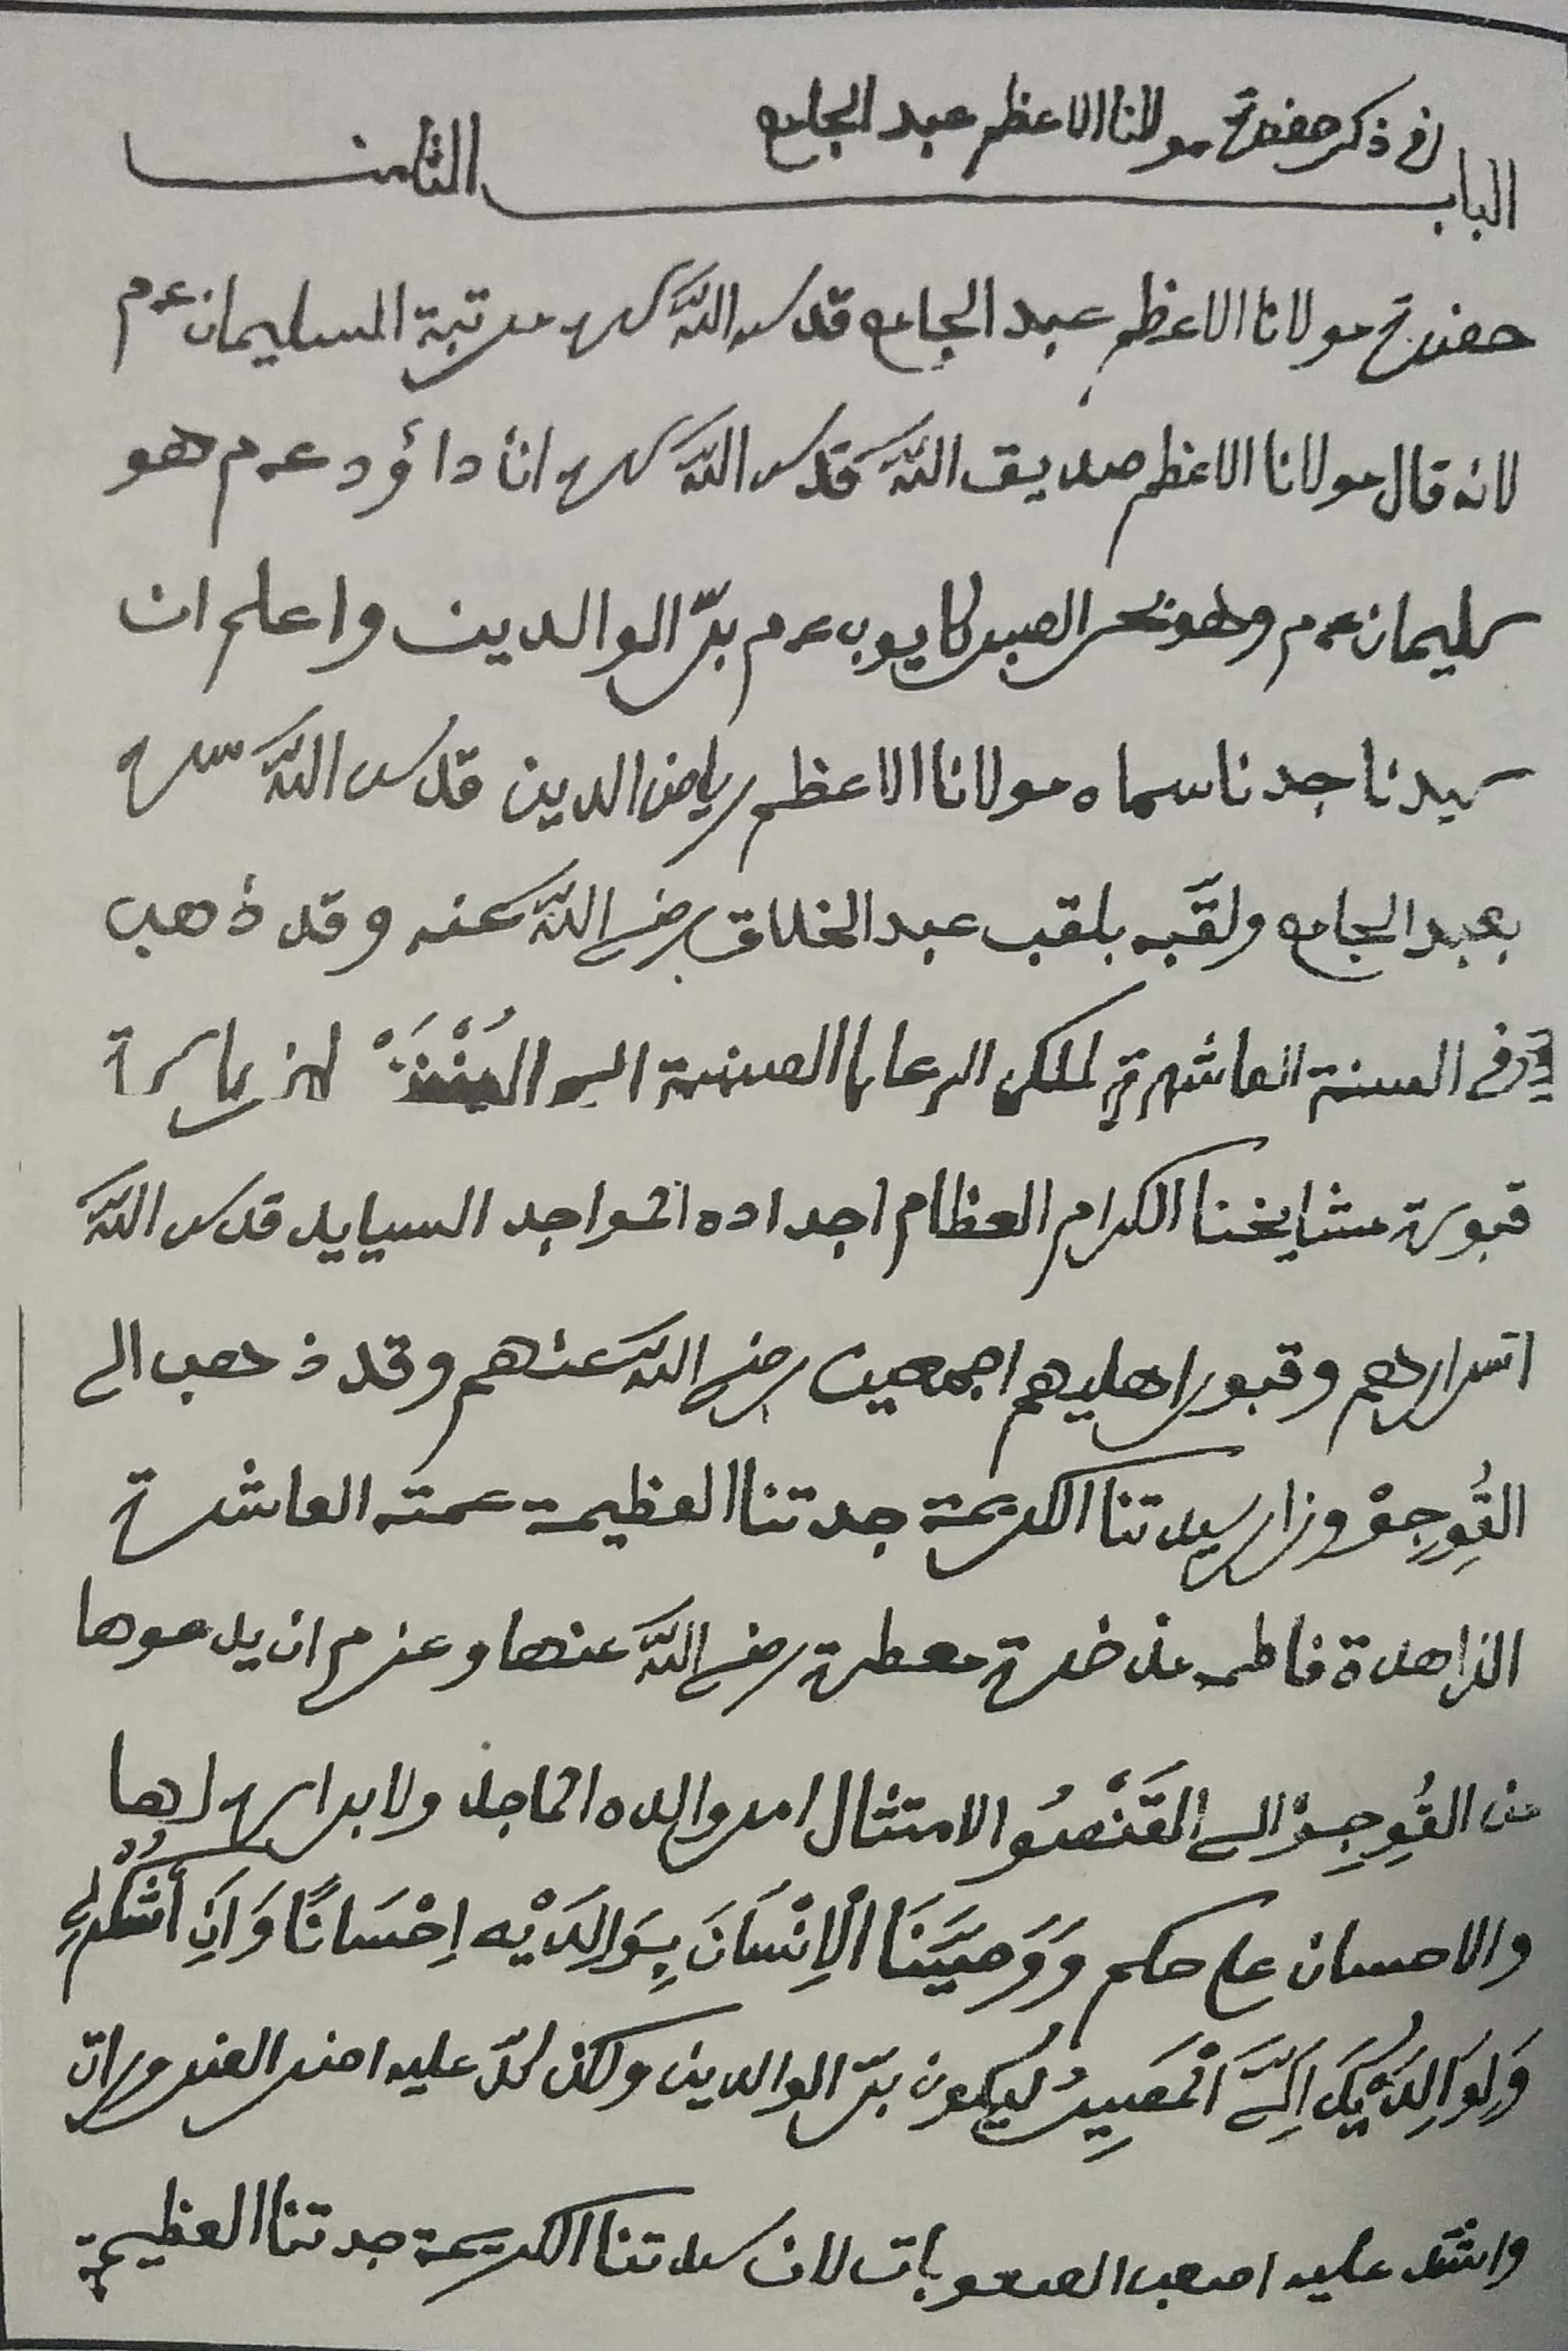 في ذكر حضرة مولانا الاعظم عبد الجامع
الباب الثامن
حضرة مولانا الاعظم عبد الجامع قدس اللّٰه سره مرتبة السليمان عم
لانه قال مولانا الاعظم صديق اللّٰه قدس اللّٰه سره انا داؤد عم هو
سليمان عم وهو الصبر كايوب عم برّ الوالدين واعلم ان
سيدنا جدنا سماه مولانا الاعظم رياض الدين قدس اللّٰه سره
بعبد الجامع ولقّبه بلقب عبد الخلاق رضي اللّٰه عنه وقد ذهب
في السنة العاشرة لملك الرعايا الصينية الى لزيارة
قبورة مشايخنا الكرام العظام اجداده المواجد السيايد قدس اللّٰه
اسرارهم وقبور اهليهم اجمعين رضي اللّٰه عنهم وقد ذهب الى
القُوِجِوْ وزار سيدتنا الكريمة جدتنا العظيمة عمته العاشرة
الزاهدة فاطمه معطرة رضي اللّٰه عنها وعزم ان يدعوها
من القُوِجِوْ الى القَنْصُو الامتثال امر والده الماجد ولابراره لها
والاحسان على حكم وَوَصَيَّنَا الْاِنْسَانَ بِوَالِدَيْه اِحْسَانًا وَاَنِ اشْكُرْ لِي
وَلِوَالِدَيْكَ اِلَيَّ الْمَصِيرُ ليكون برّ الوالدين ولكن كلّ عليه اضر الضرورات
واشد عليه اصعب الصعوبات لان سيدتنا الكريمة جدتنا العظيمة